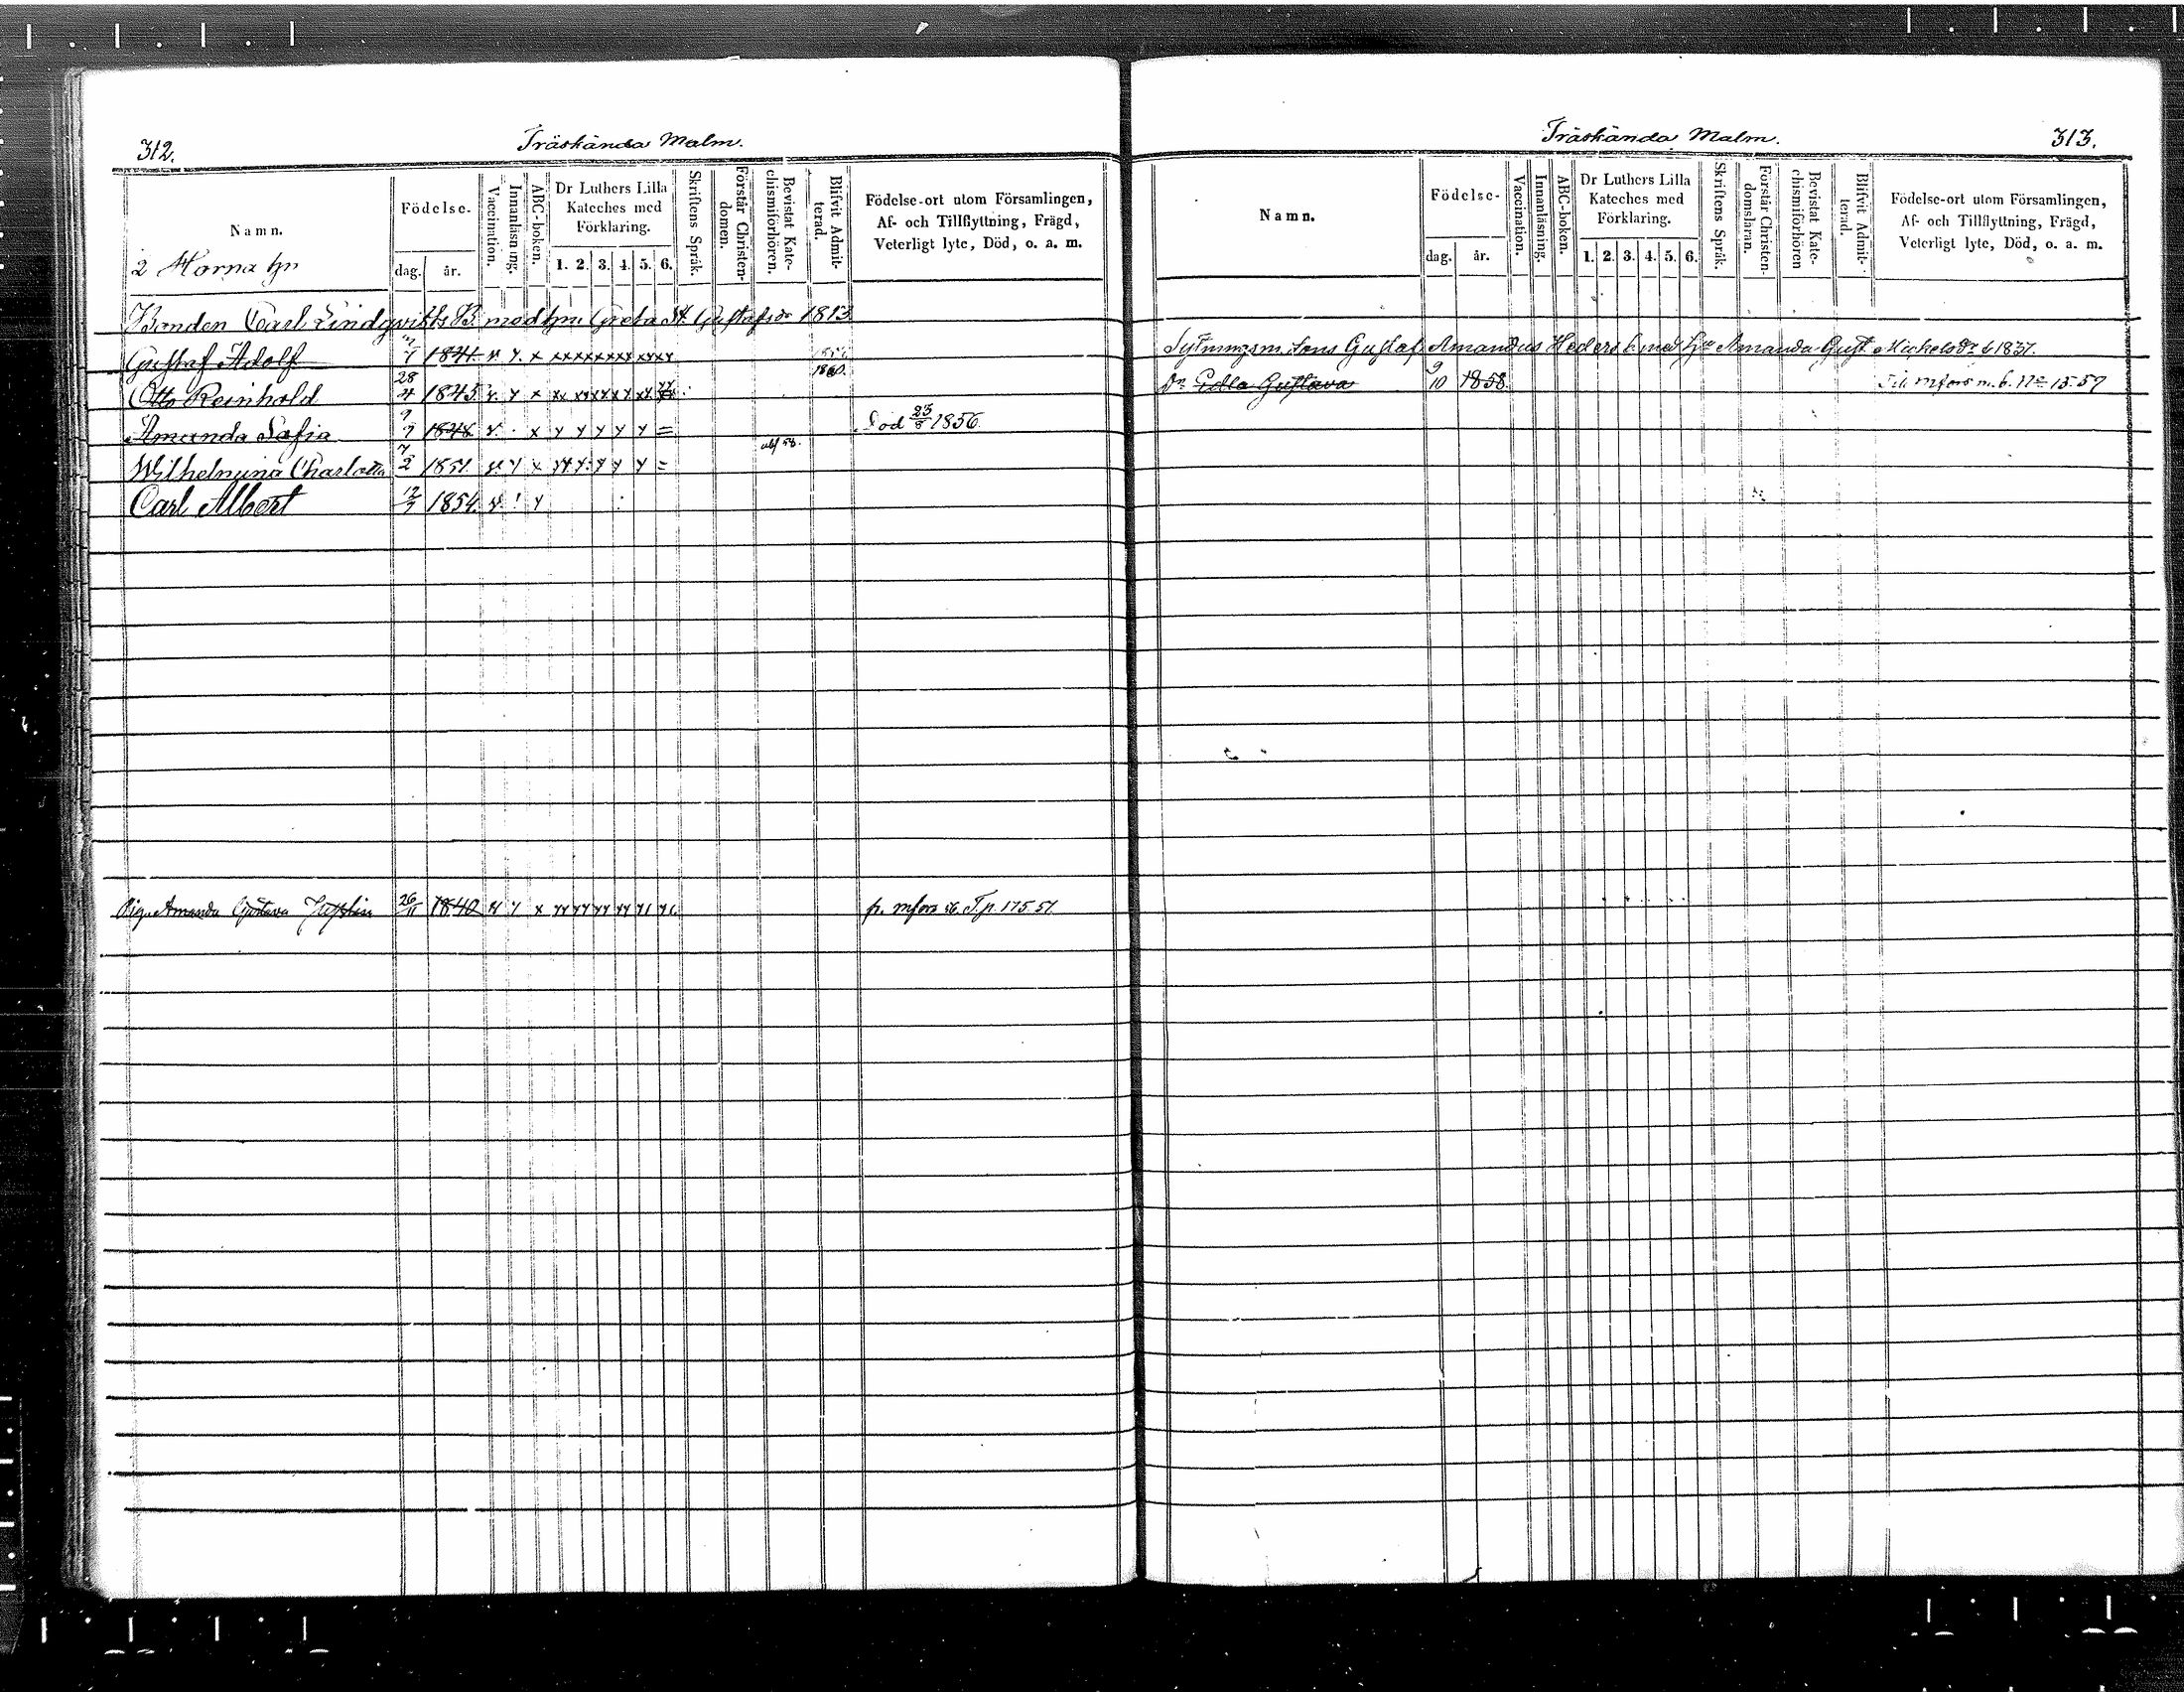 312.
Träskända Malm.
Namn.
Födelse-
dag. år.
Vaccination.
Innanläsning.
ABC-boken.
Dr Luthers Lilla Kateches med Förklaring.
1. 2. 3. 4. 5. 6.
Skriftens Språk.
Förstår Christendomen.
Bevistat Katechismiförhören.
Blifvit Admitterad.
Födelse-ort utom Församlingen,
Af- och Tillflyttning, Frägd,
Veterligt lyte, Död, o. a. m.
2 Horna hn
Bonden Carl Lindqvists B. med hn Greta St. Gustafsdr 1813
Gustaf Adolf 1841 v. y. x xx xx xx xx xx xx
Otto Reinhold 28/4 1845 v. y x xx xx xx xx xx 1860.
Amanda Sofia 9/7 1848 v. x y y y y y = Död 23/8 1856.
Wilhelmina Charlotta 7/2 1851 v. y x yy y y y y =
Carl Albert 12/7 1854. v. y
Pig. Amanda Gustava 26/11 1840 v y x yy yy yy yy fr. mfors 56. T. p. 175. 57.
313.
Träskända Malm.
Namn.
Födelse-
dag. år.
Vaccination.
Innanläsning.
ABC-boken.
Dr Luthers Lilla Kateches med Förklaring.
1. 2. 3. 4. 5. 6.
Skriftens Språk.
Förstår Christendomsläran.
Bevistat Katechismiförhören
Blifvit Admitterad.
Födelse-ort utom Församlingen,
Af- och Tillflyttning, Frägd,
Veterligt lyte, Död, o. a. m.
Sytningsm. Sons Gustaf Amandus Heders b. med Hu Amanda Gust. Mickelsdr f. 1837.
Dr Edla Gustava 9/10 1858 Till mfors m. b. No 15. 59